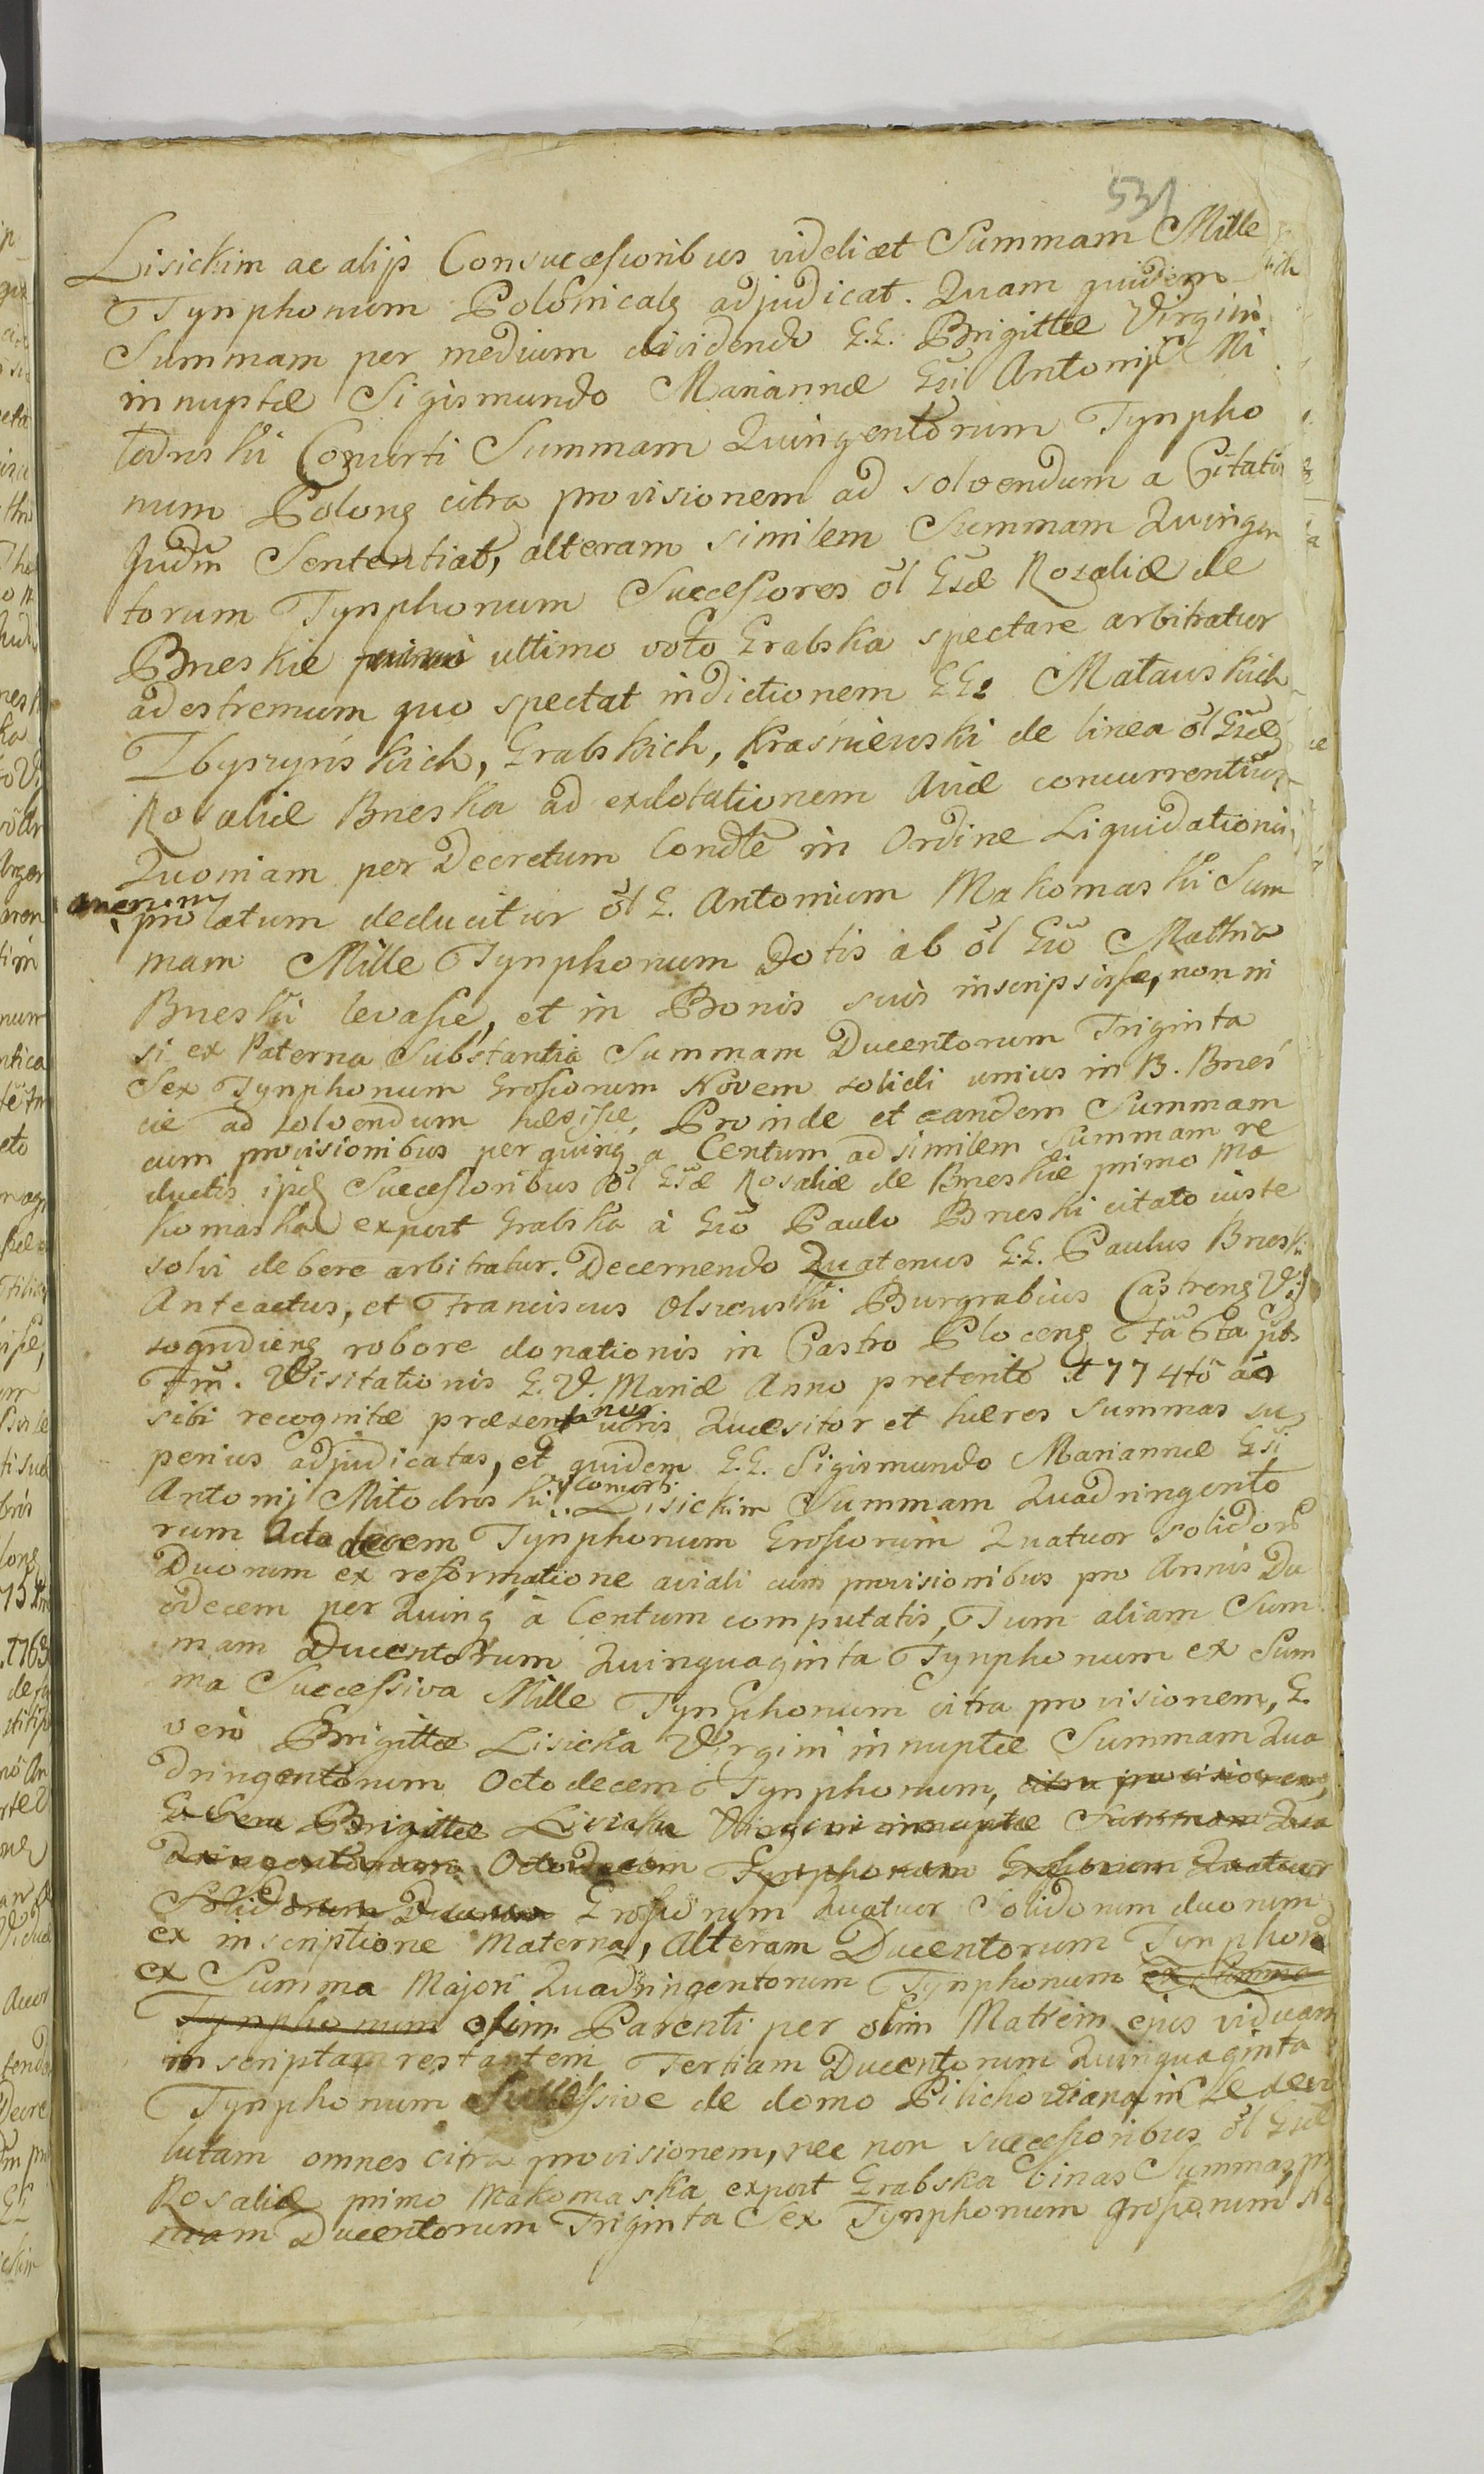 531
Lisickim ac alijs Consuccessoribus videlicet Summam Mille
Tynphonum Polonicalg adjudicat. Quam quidem
Summam per medium dividendo G.G. Brigittæ Virgini
innuptæ Sigismundo Mariannæ Gsi Antonij Mi
todrski Consorti Summam Quingentorum Tynpho
num Polong citra provisionem ad solvendum a Citatis
Judm Sententiat, alteram similem Summam Quingen
torum Tynphonum Successores ol Gsæ Rosaliæ de
Bneskie ultimo voto Grabska spectare arbitratur
ad estremum quo spectat indictionem GG. Matauskich
Zbyszyńskich, Grabskich, Kraśniewski de linea ol Gsæ
Rosaliæ Bneska ad exdotationem Aviæ concurrentium
Quoniam per Decretum Condle in Ordine Liquidationis
prolatum deducitur ol G. Antonium Makomaski Sum
mam Mille Tynphonum Dotis ab ol Gso Mathia
Bneski levasse, et in Bonis suis inscripsisse, non ni
si ex Paterna Substantia Summam Ducentorum Triginta
Sex Tynphonum Grossorum Novem solidi unius in B. Bneś
cie ad solvendum hæsisse, Proinde et eandem Summam
cum provisionibus per quinq a Centum ad similem Summam re
ductis ipis Successoribus ol Gsæ Rosaliæ de Bneskie primo Ma
komaska expost Grabska à Gso Paulo Bneski citato iuste
solvi debere arbitratur. Decernendo Quatenus G.G. Paulus Bneski
Anteactus, et Franciscus Olszewski Burgrabius Castreng Vis
sogrudieng robore donationis in Castro Ploceng
Fm. Visitationis B. V. Mariæ Anno preterito 1774to
sibi recognitæ Quæsitor et hæres Summas su
perius adjudicatas, et quidem G.G. Sigismundo Mariannæ Gsi
Antonij Mitodrski Consorti Lisickim Summam Quadringento
rum Octodecem Tynphonum Grossorum Quatuor Solidor
Duorum ex reformatione aviali cum provisionibus pro Annis Du
odecem per Quinq à Centum computatis, Tum aliam Sum
mam Ducentorum Quinquaginta Tynphonum ex Sum
ma Successiva Mille Tynphonum citra provisionem, G.
vero Brigittæ Lisicka Virgini innuptæ Summam Qua
dringentorum Octodecem Tynphonum, citra provisionem,
G. Vero Brigittæ Lisicka Virgini innuptæ Summam Qua
dringentorum Octodecem Tynphonum Grossorum Quatuor
Solidorum Duorum Grossorum Quatuor Solidorum duorum
ex inscriptione Materna, Alteram Ducentorum Tynphon
ex Summa Majori Quadringentorum Tynphonum ex Summa
Tynphonum olim Parenti per olim Matrem ejus viduam
inscriptam restantem, Tertiam Ducentorum Quinquaginta
Tynphonum Successive de domo Pilichoviana in se devo
lutam omnes citra provisionem, nec non successoribus ol Gsæ
Rosaliæ primo Makomaska expost Grabska binas Summas pri
mam Ducentorum Triginta Sex Tynphonum grossorum No